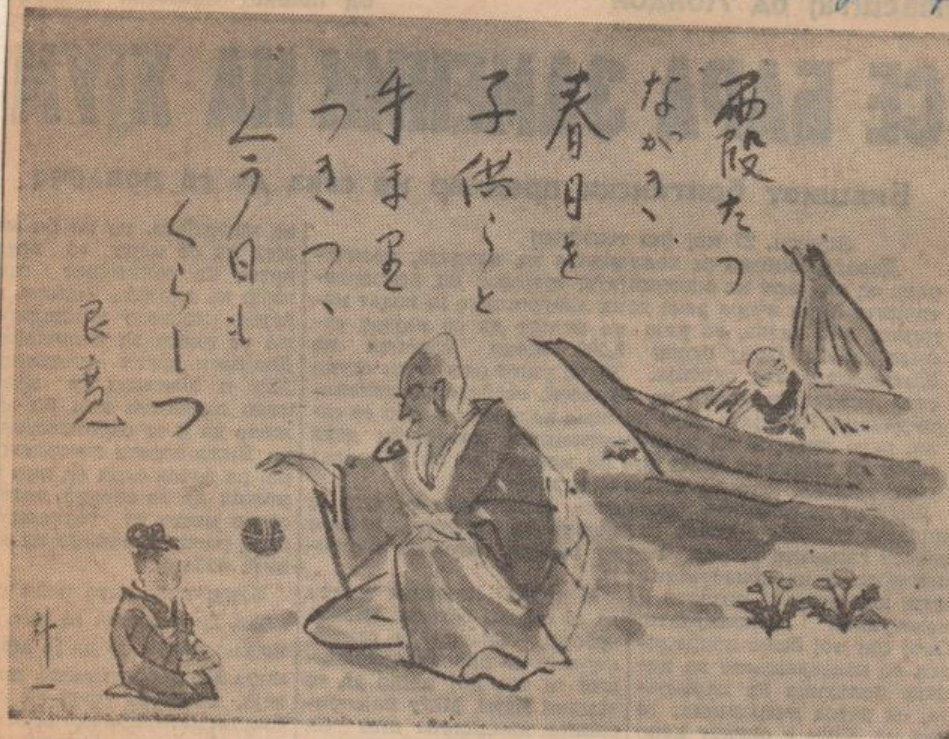 霞たつ
ながき
春日を
子供らと
手まり
つきつゝ
日も
くらしつ
良寛